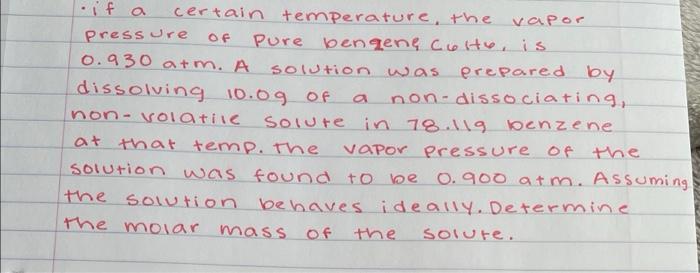 · if a certain temperature, the vapor
pressure of pure benzene C6H6, is
0.930 atm. A solution was prepared by
dissolving 10.0g of a non-dissociating,
non-volatile solute in 78.11g benzene
at that temp. the vapor pressure of the
solution was found to be 0.900 atm. Assuming
the solution behaves ideally. Determine
the molar mass of the solute.